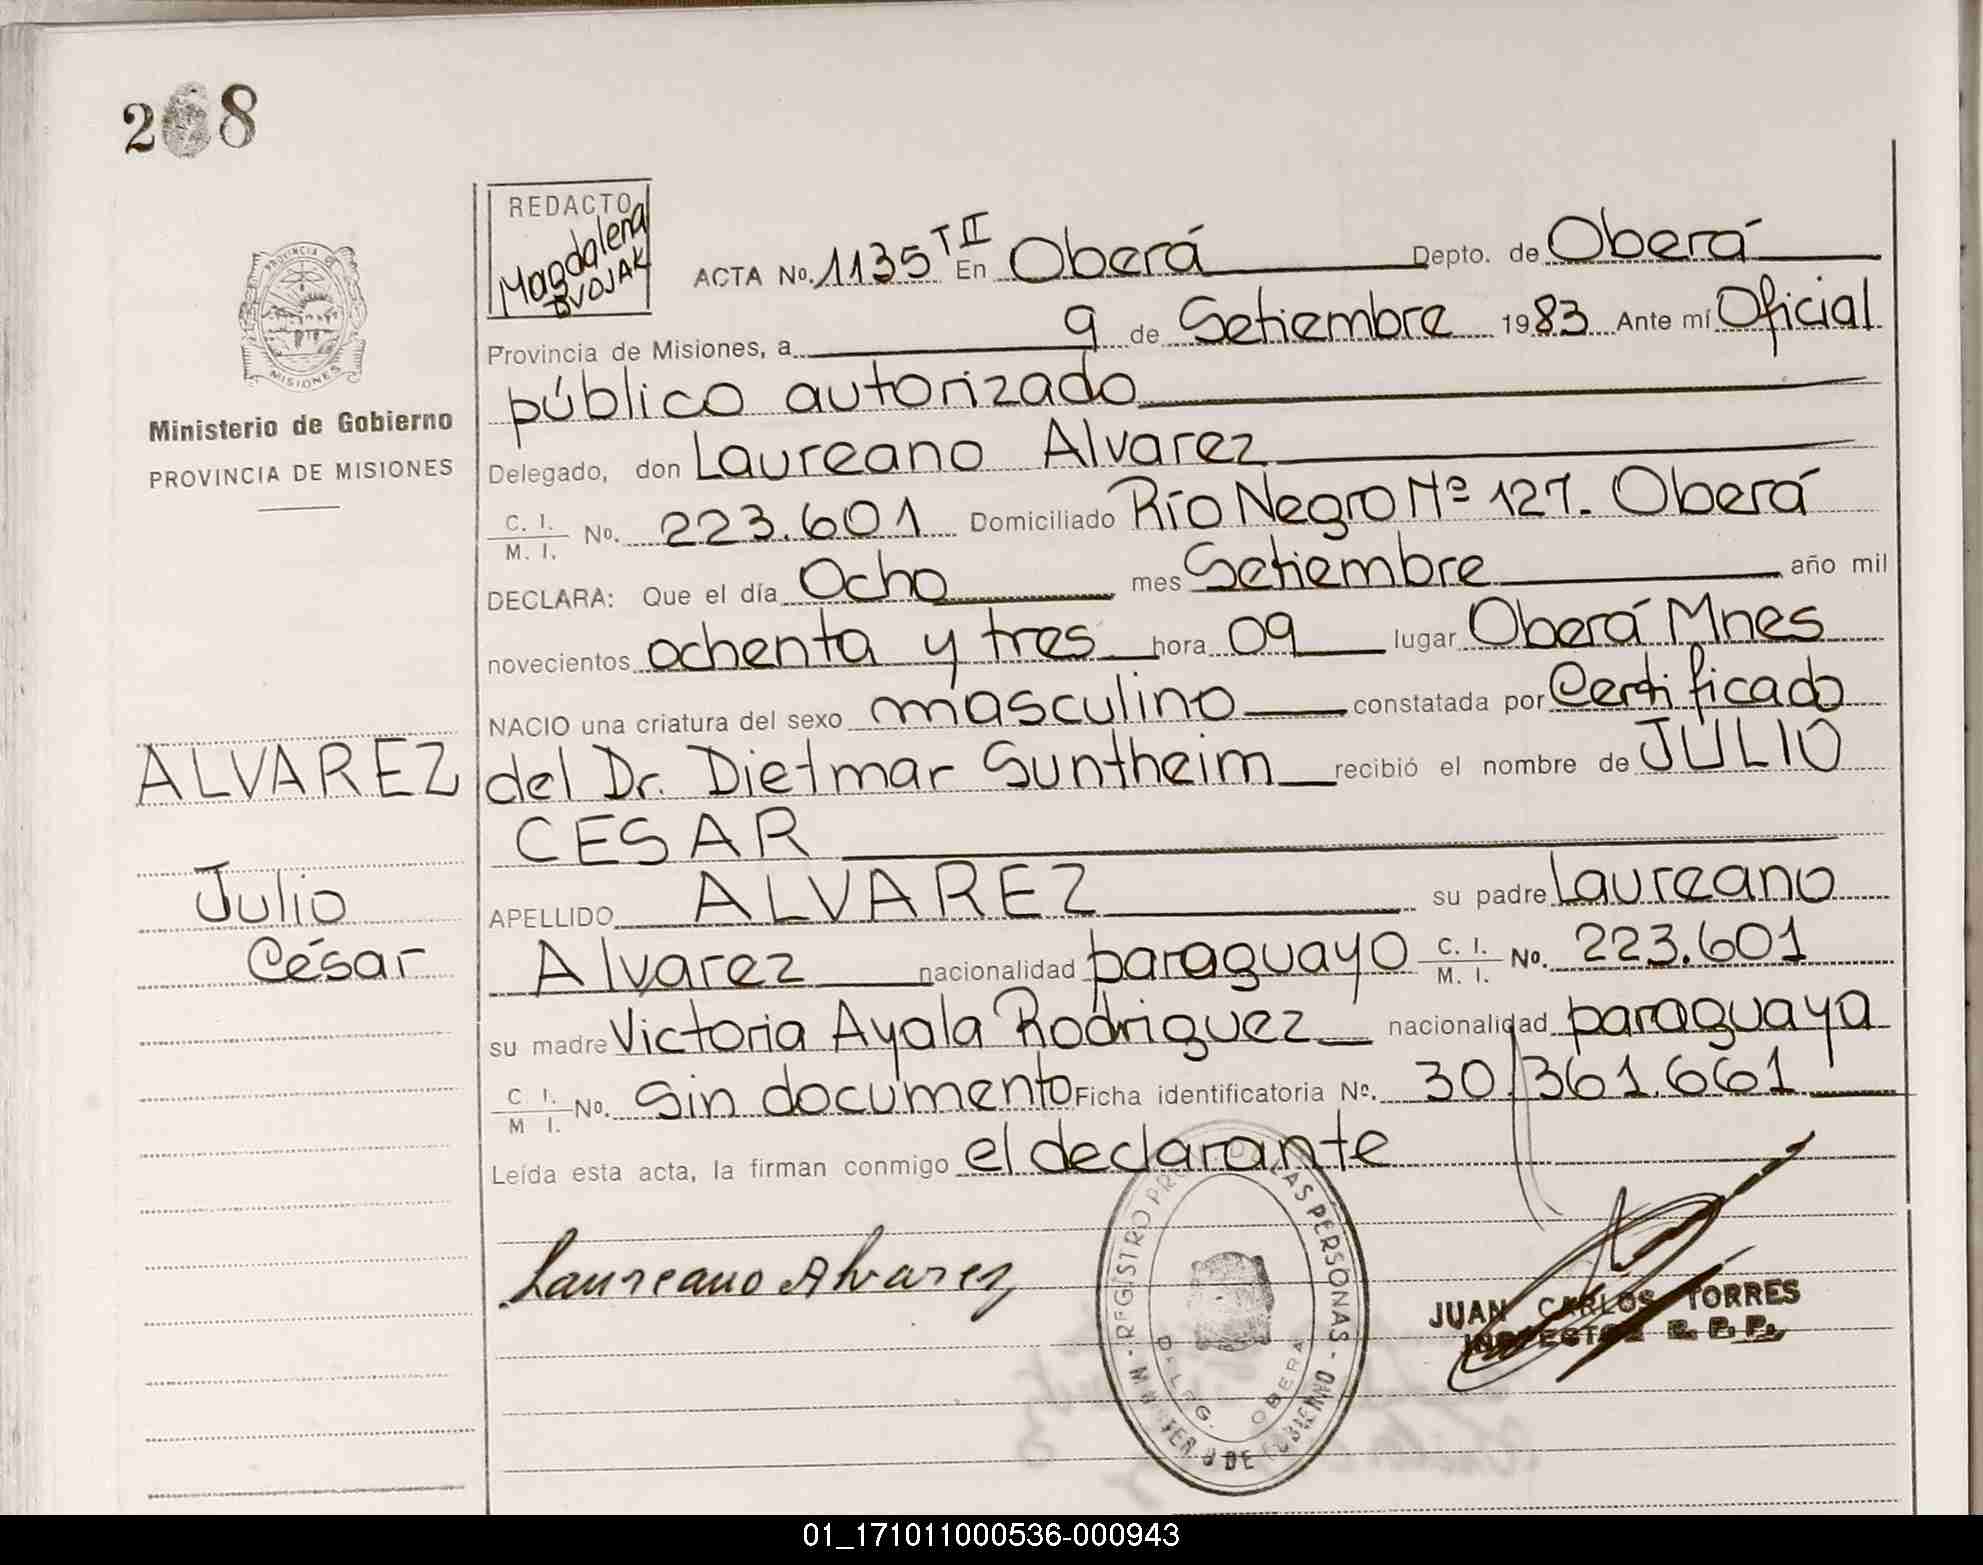 268
REDACTO
Magdalena
DVOJAK
ACTA No. 1135 T II En Oberá Depto. de Oberá
Provincia de Misiones, a 9 de Setiembre 1983 Ante mí Oficial
público autorizado
Delegado, don Laureano Alvarez
C. I. / M. I. No. 223.601 Domiciliado Río Negro Nº 127. Oberá
DECLARA: Que el día Ocho mes Setiembre año mil
novecientos ochenta y tres hora 09 lugar Oberá Mnes
NACIO una criatura del sexo masculino constatada por Certificado
del Dr. Dietmar Suntheim recibió el nombre de JULIO
CESAR
APELLIDO ALVAREZ su padre Laureano
Alvarez nacionalidad paraguayo C. I. / M. I. No. 223.601
su madre Victoria Ayala Rodriguez nacionalidad paraguaya
C I. / M I. No. Sin documento Ficha identificatoria No. 30.361.661
Leída esta acta, la firman conmigo el declarante
Laureano Alvarez
JUAN CARLOS TORRES
INSPECTOR R. P. P.
REGISTRO PROV. DE LAS PERSONAS - MINISTERIO DE GOBIERNO -
DELEG. OBERA
PROVINCIA DE
MISIONES
Ministerio de Gobierno
PROVINCIA DE MISIONES
ALVAREZ
Julio
César
01_171011000536-000943